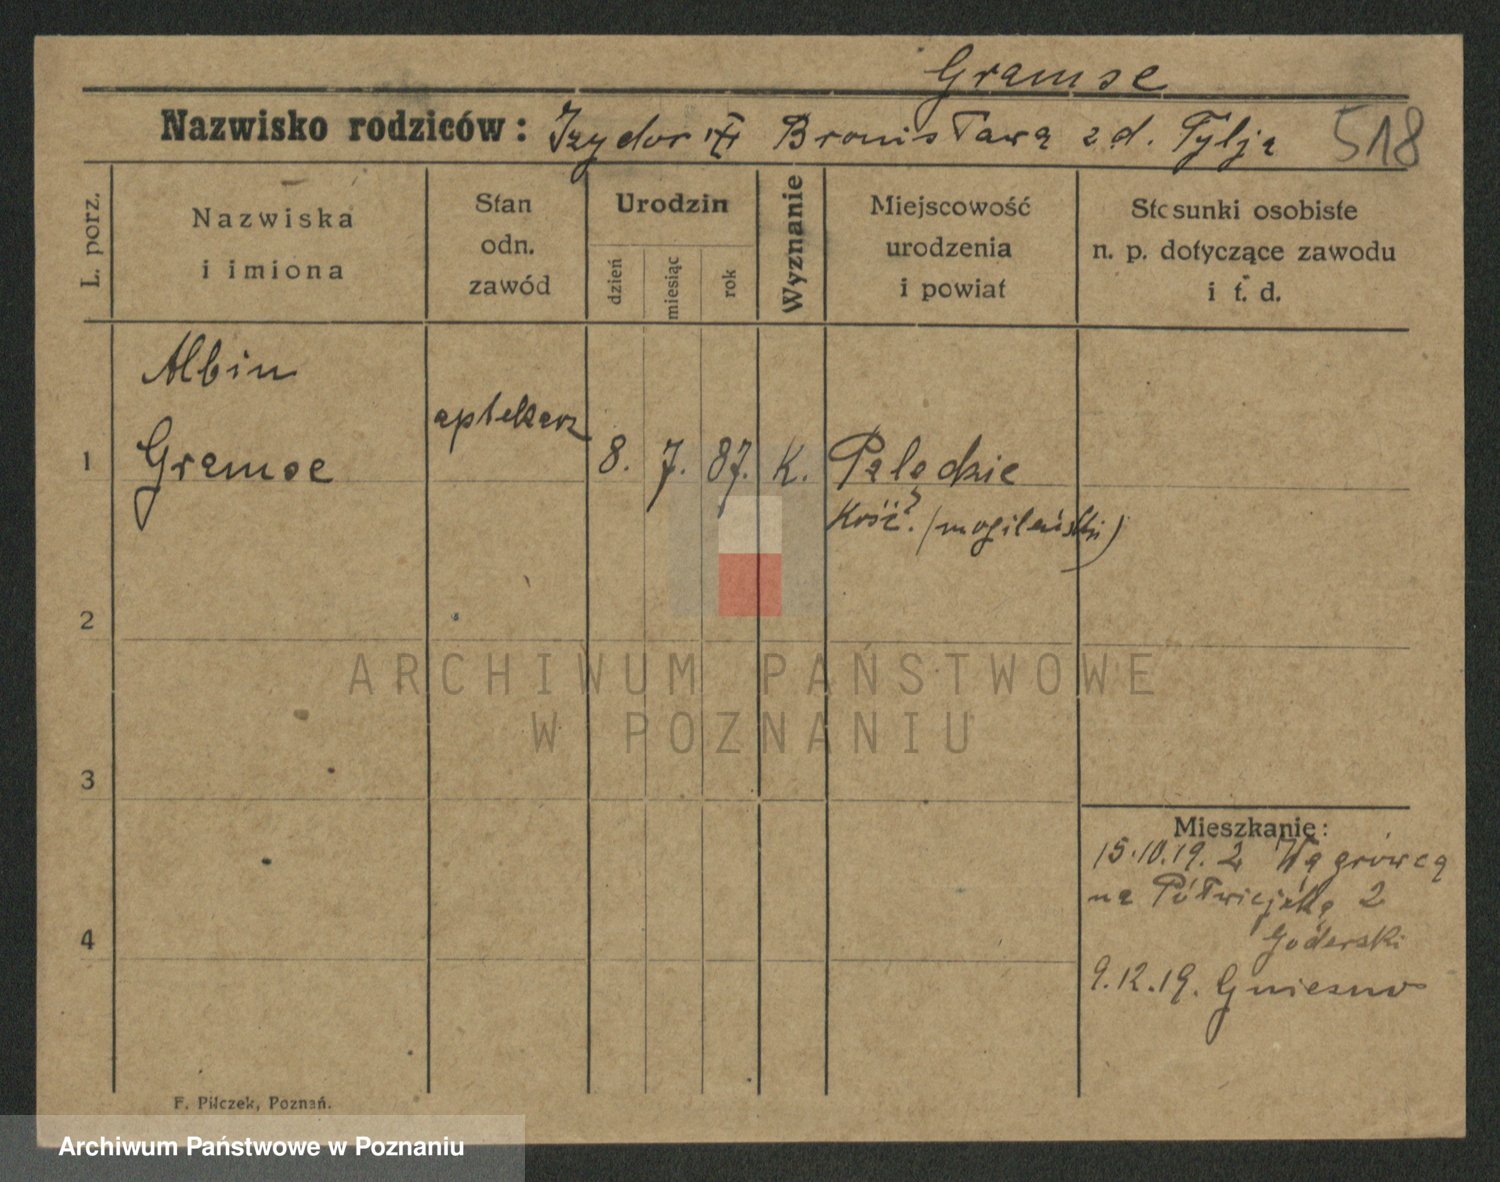 Gramse
Nazwisko rodziców: Izydor Bronisława zd. Tylja 518
L. porz.
Nazwiska
i imiona
Stan
odn.
zawód
Urodzin
dzień
miesiąc
rok
Wyznanie
Miejscowość
urodzenia
i powiat
Stosunki osobiste
n. p. dotyczące zawodu
i t. d.
Albin
aptekarz
1 Gramse 8. 7. 87. K. Palędzie
Kość. (mogileński)
2
ARCHIWUM PAŃSTWOWE
W POZNANIU
3
Mieszkanie:
15.10.19. z Wągrówca
na Półwiejska 2
4
Goderski
9.12.19. Gniezno
F. Pilczek, Poznań.
Archiwum Państwowe w Poznaniu